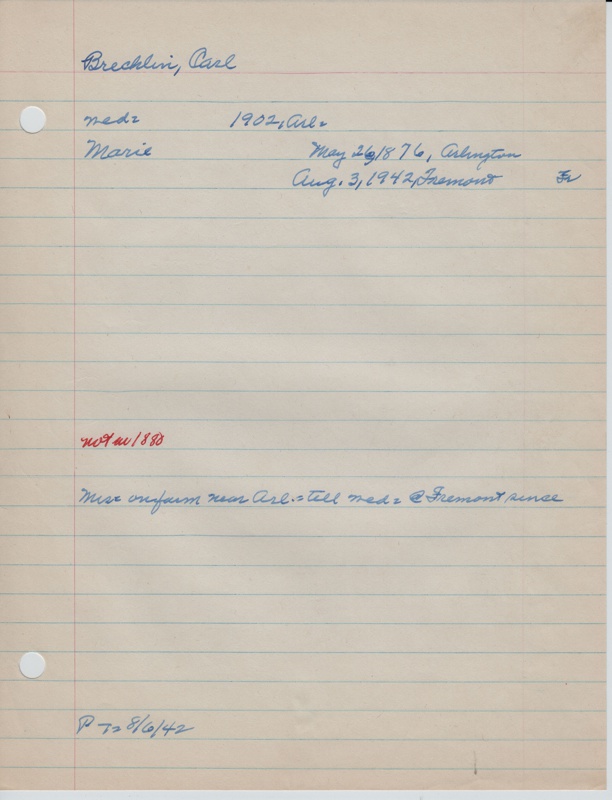 Brecklin, Carl
med= 1902, Arl=
Marie May 26, 1876, Arlington
Aug. 3, 1942, Fremont Fr
not in 1880
Mrs= on farm near Arl.= till med= @ Fremont since
P T= 8/6/42